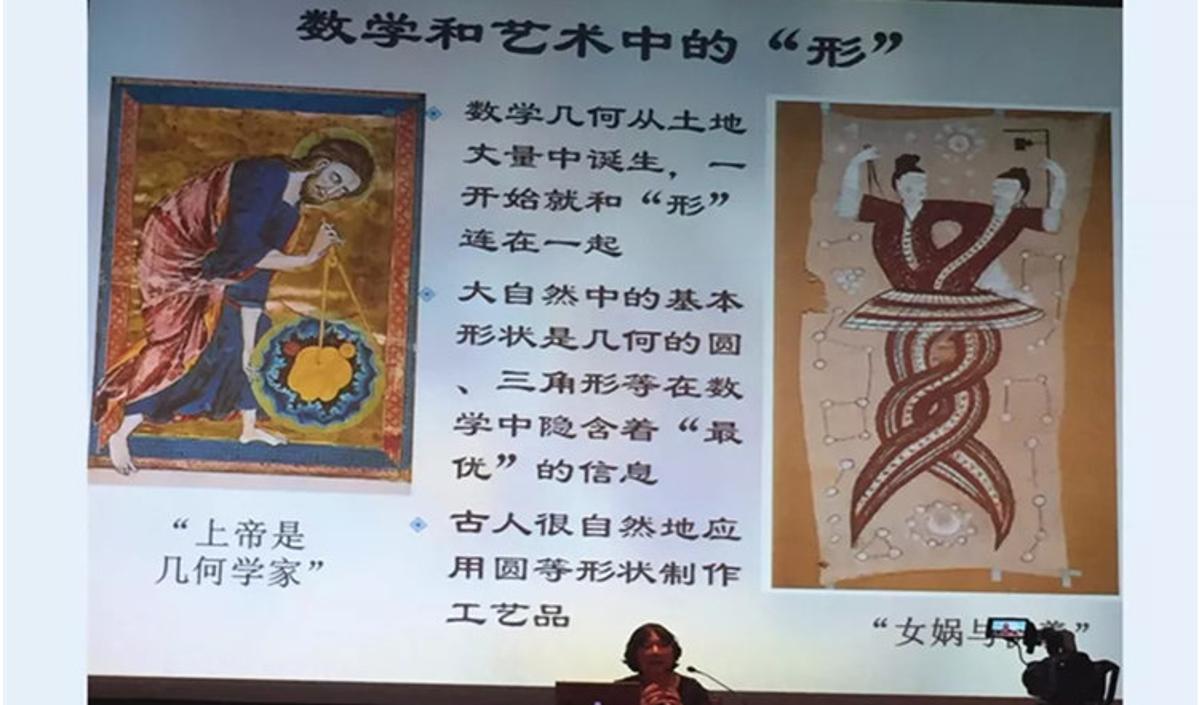 数学和艺术中的“形”
数学几何从土地
丈量中诞生，一
开始就和“形”
连在一起
大自然中的基本
形状是几何的圆
、三角形等在数
学中隐含着“最
优”的信息
古人很自然地应
用圆等形状制作
工艺品
“上帝是
几何学家”
“女娲与 ”